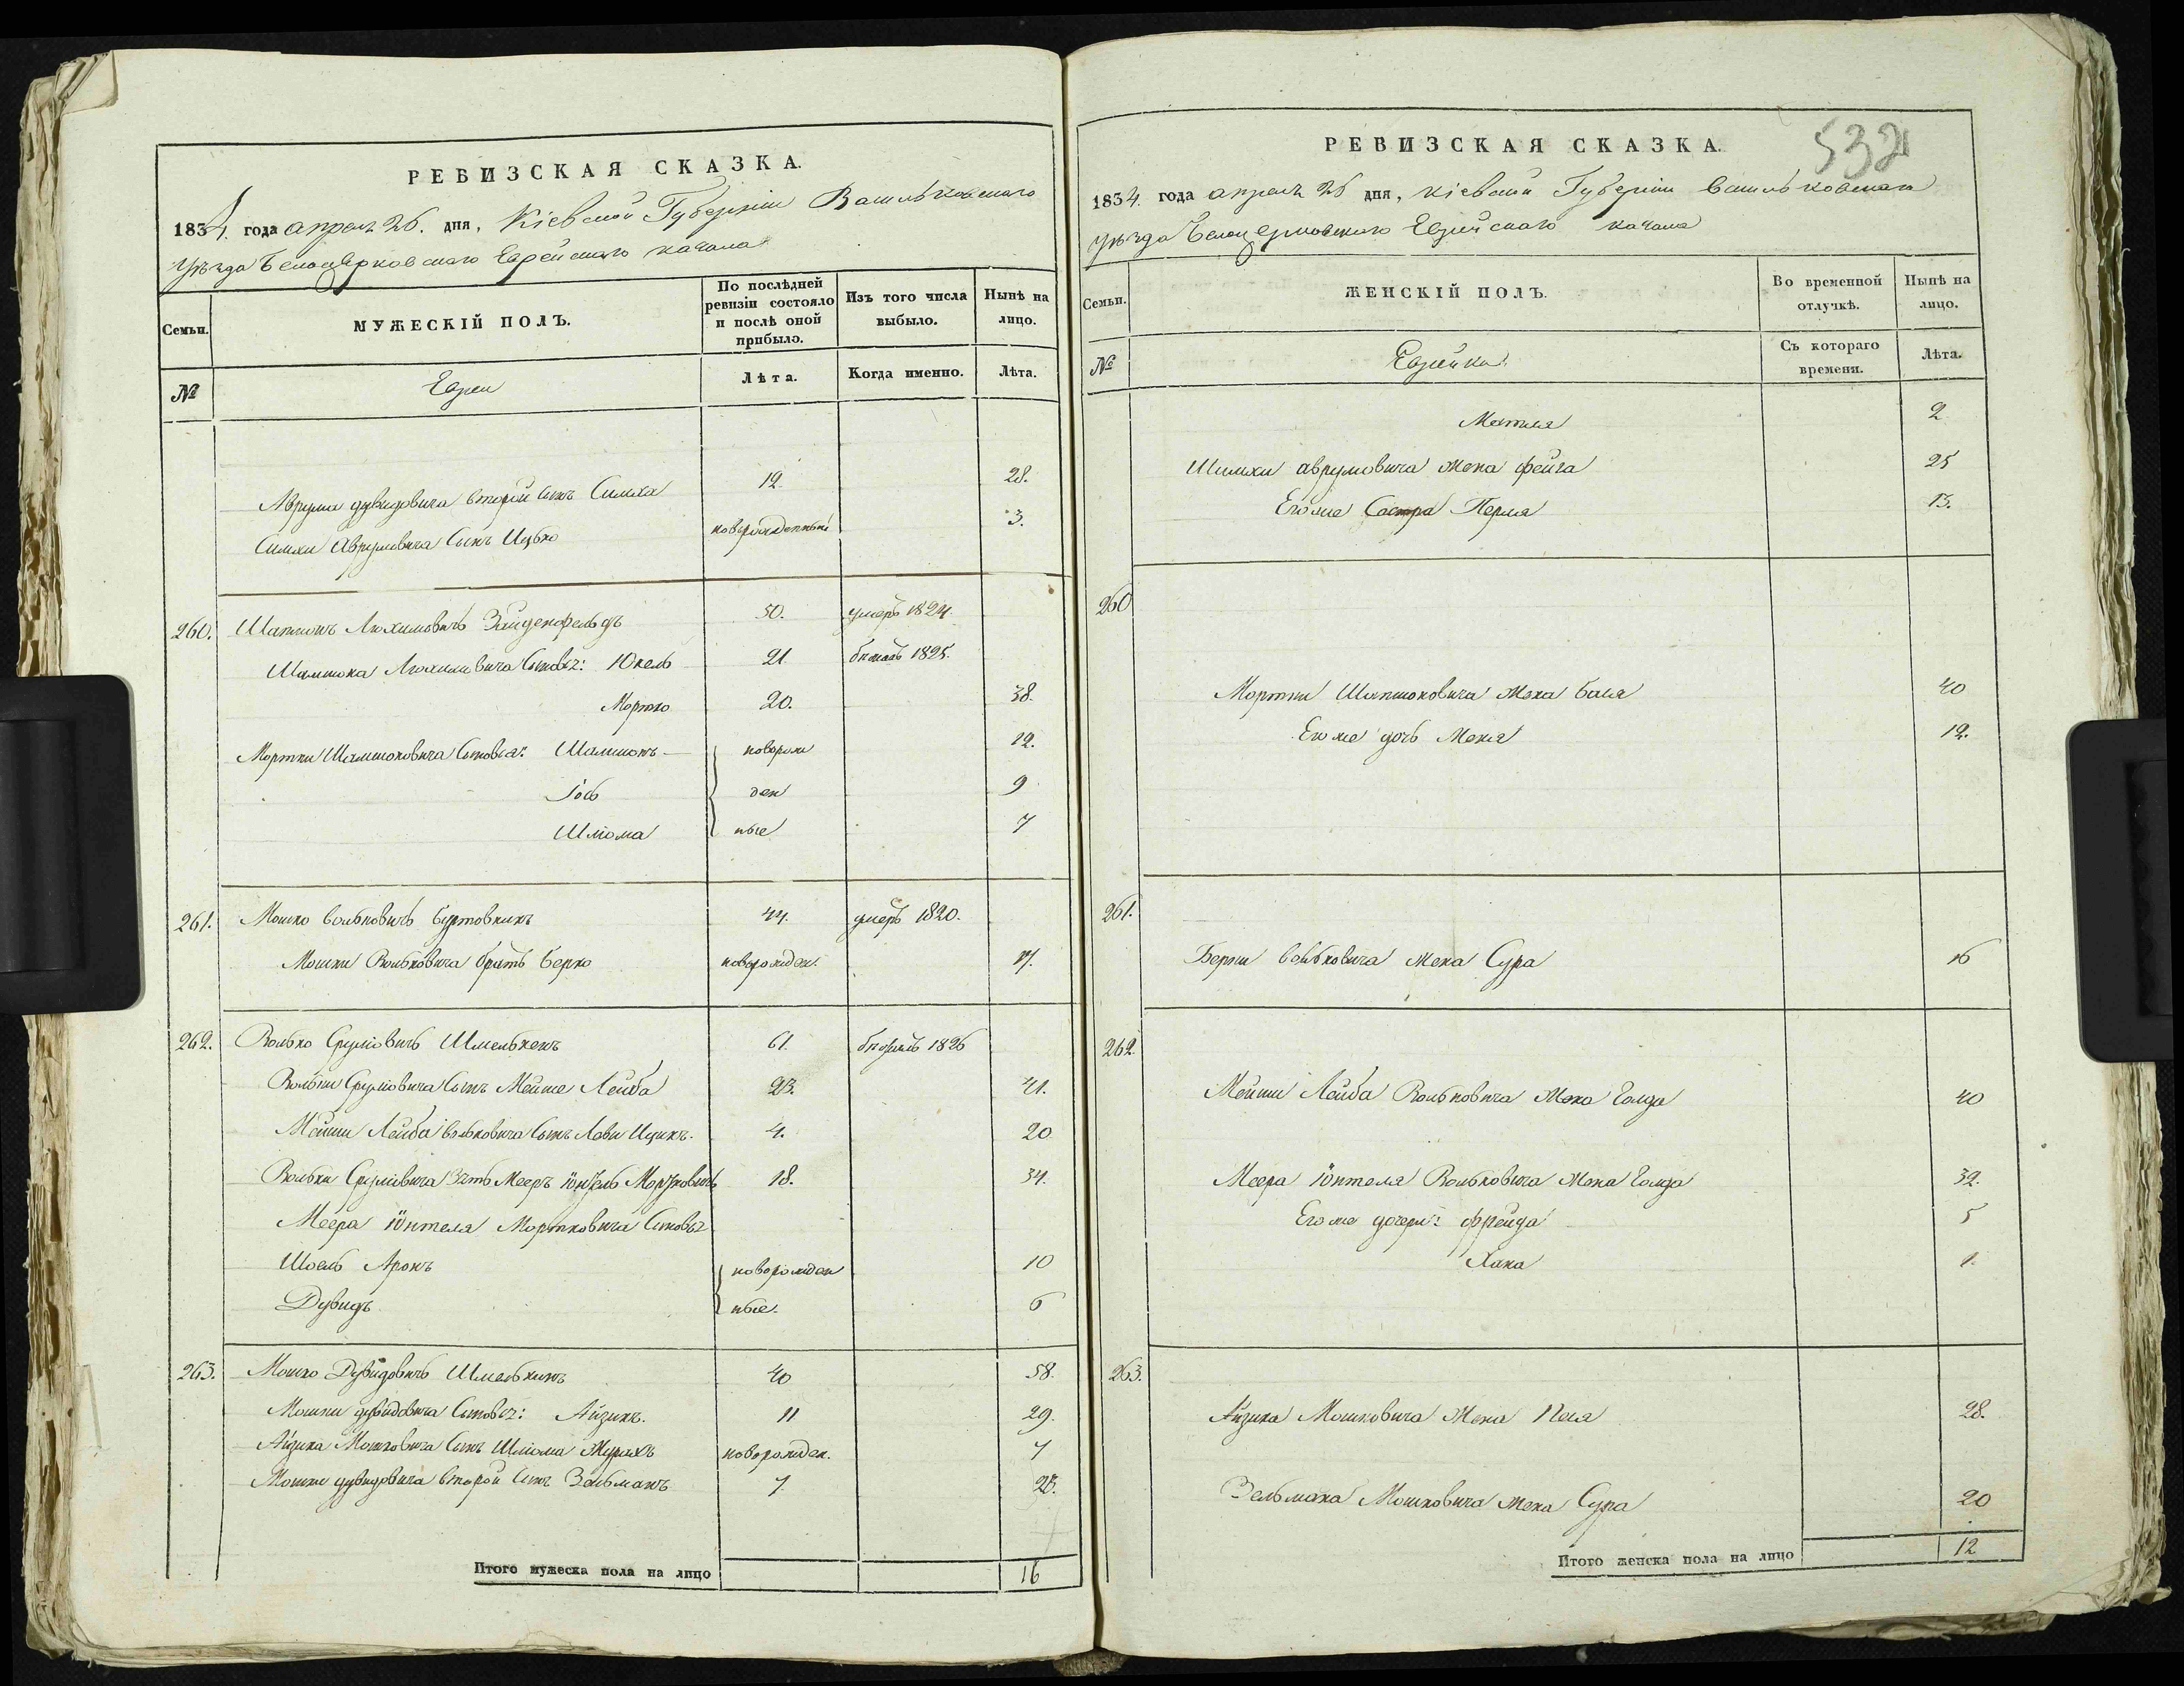 РЕВИЗСКАЯ СКАЗКА.
1834. года апрель 26. дня, Кіевской Губерніи Васильковскаго
Уѣзда Белоцерковскаго Еврейскаго кагала
Семьи.
МУЖЕСКІЙ ПОЛЪ.
По послѣдней ревизіи состояло и послѣ оной прибыло.
Изъ того числа выбыло.
Нынѣ на лицо.
№
Евреи
Лѣта.
Когда именно.
Лѣта.
Аврума дувидовича второй сынъ Симха 12 28.
Симхи Аврумовича Сынъ Ицько новорожденный 3.
260. Шапшонъ Лохимовичь Зайденфельдъ 50. умеръ 1824.
Шамшона Лохимовича Сыновья: Юкель 21. бежалъ 1825.
Мортко 20. 38.
Мортки Шамшоновича Сыновья: Шамшонъ новорож 12.
Іось ден 9
Шліома ные 7
261. Мошко вольковичь Буртовникъ 44. умеръ 1820.
Мошки Вольковича братъ Берко новорожден. 17.
262. Волько Сруліовичь Шмелькенъ 61. 1826
Вольки Сруліовича Сынъ Мейше Лейба 23. 41.
Мейши Лейба вольковича Сынъ Леви Ицикъ. 4. 20
Вольки Сруліовича Зять Мееръ Морзковичь 18. 34.
Меера Іонтеля Мортковича Сыновья
Шоель Аронъ новорожден 10
Дувидъ ные. 6
263. Мошко Дувидовичь Шмелькинъ 40 58.
Мошки дувидовича Сыновья: Айзикъ. 11 29.
Айзика Мошковича Сынъ Шліома новорожден. 7
Мошки дувидовича второй Сынъ Зельманъ 7. 25.
Итого мужеска пола на лицо 16
532
РЕВИЗСКАЯ СКАЗКА.
1834. года апреля 26 дня, Кіевской Губерніи Васильковскаго
уѣзда Белоцерковскаго Еврейскаго кагала
Семьи.
ЖЕНСКІЙ ПОЛЪ.
Во временной отлучкѣ.
Нынѣ на лицо.
№
Еврейки
Съ котораго времени.
Лѣта.
Матля 2
Шимхи аврумовича жена фейга 25
Его же Састра Перля 13.
260
Мортки Шапшоновича жена бася 40
Его же дочь Меня 12.
261.
Берки вольковича жена Сура 16
262.
Мейши Лейба Вольковича жена Голда 40
Меера Іонтеля Вольковича жена Голда 32.
Его же дочери: фрейда 5
Хана 1.
263.
Айзика Мошковича жена Песя 28.
Зельмана Мошковича жена Сура 20
Итого женска пола на лицо 12